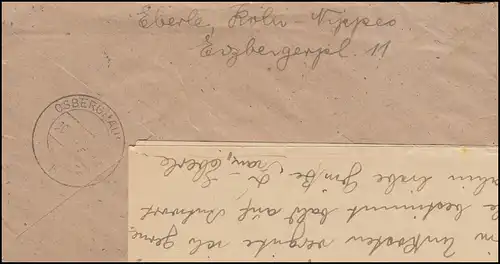 Eberle, Köln-Nippes
Erzbergerpl. 11
OSBERGHAU
im Unkosten vergüte ich gerne
bestimmt bald auf Antwort
liebe Grüße
Eberle